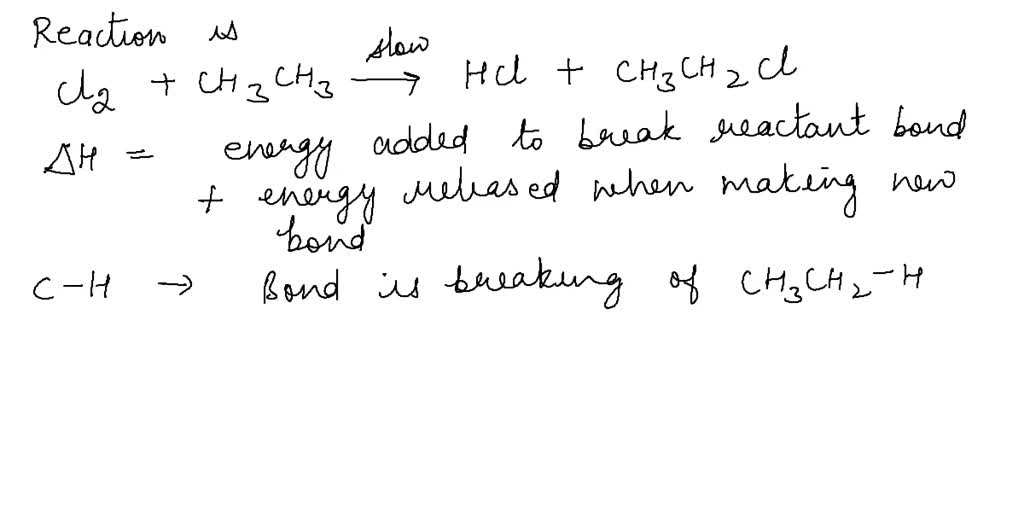 Reaction is
Cl2 + CH3CH3 slow → HCl + CH3CH2Cl
ΔH = energy added to break reactant bond
+ energy released when making new
bond
C-H → Bond is breaking of CH3CH2-H